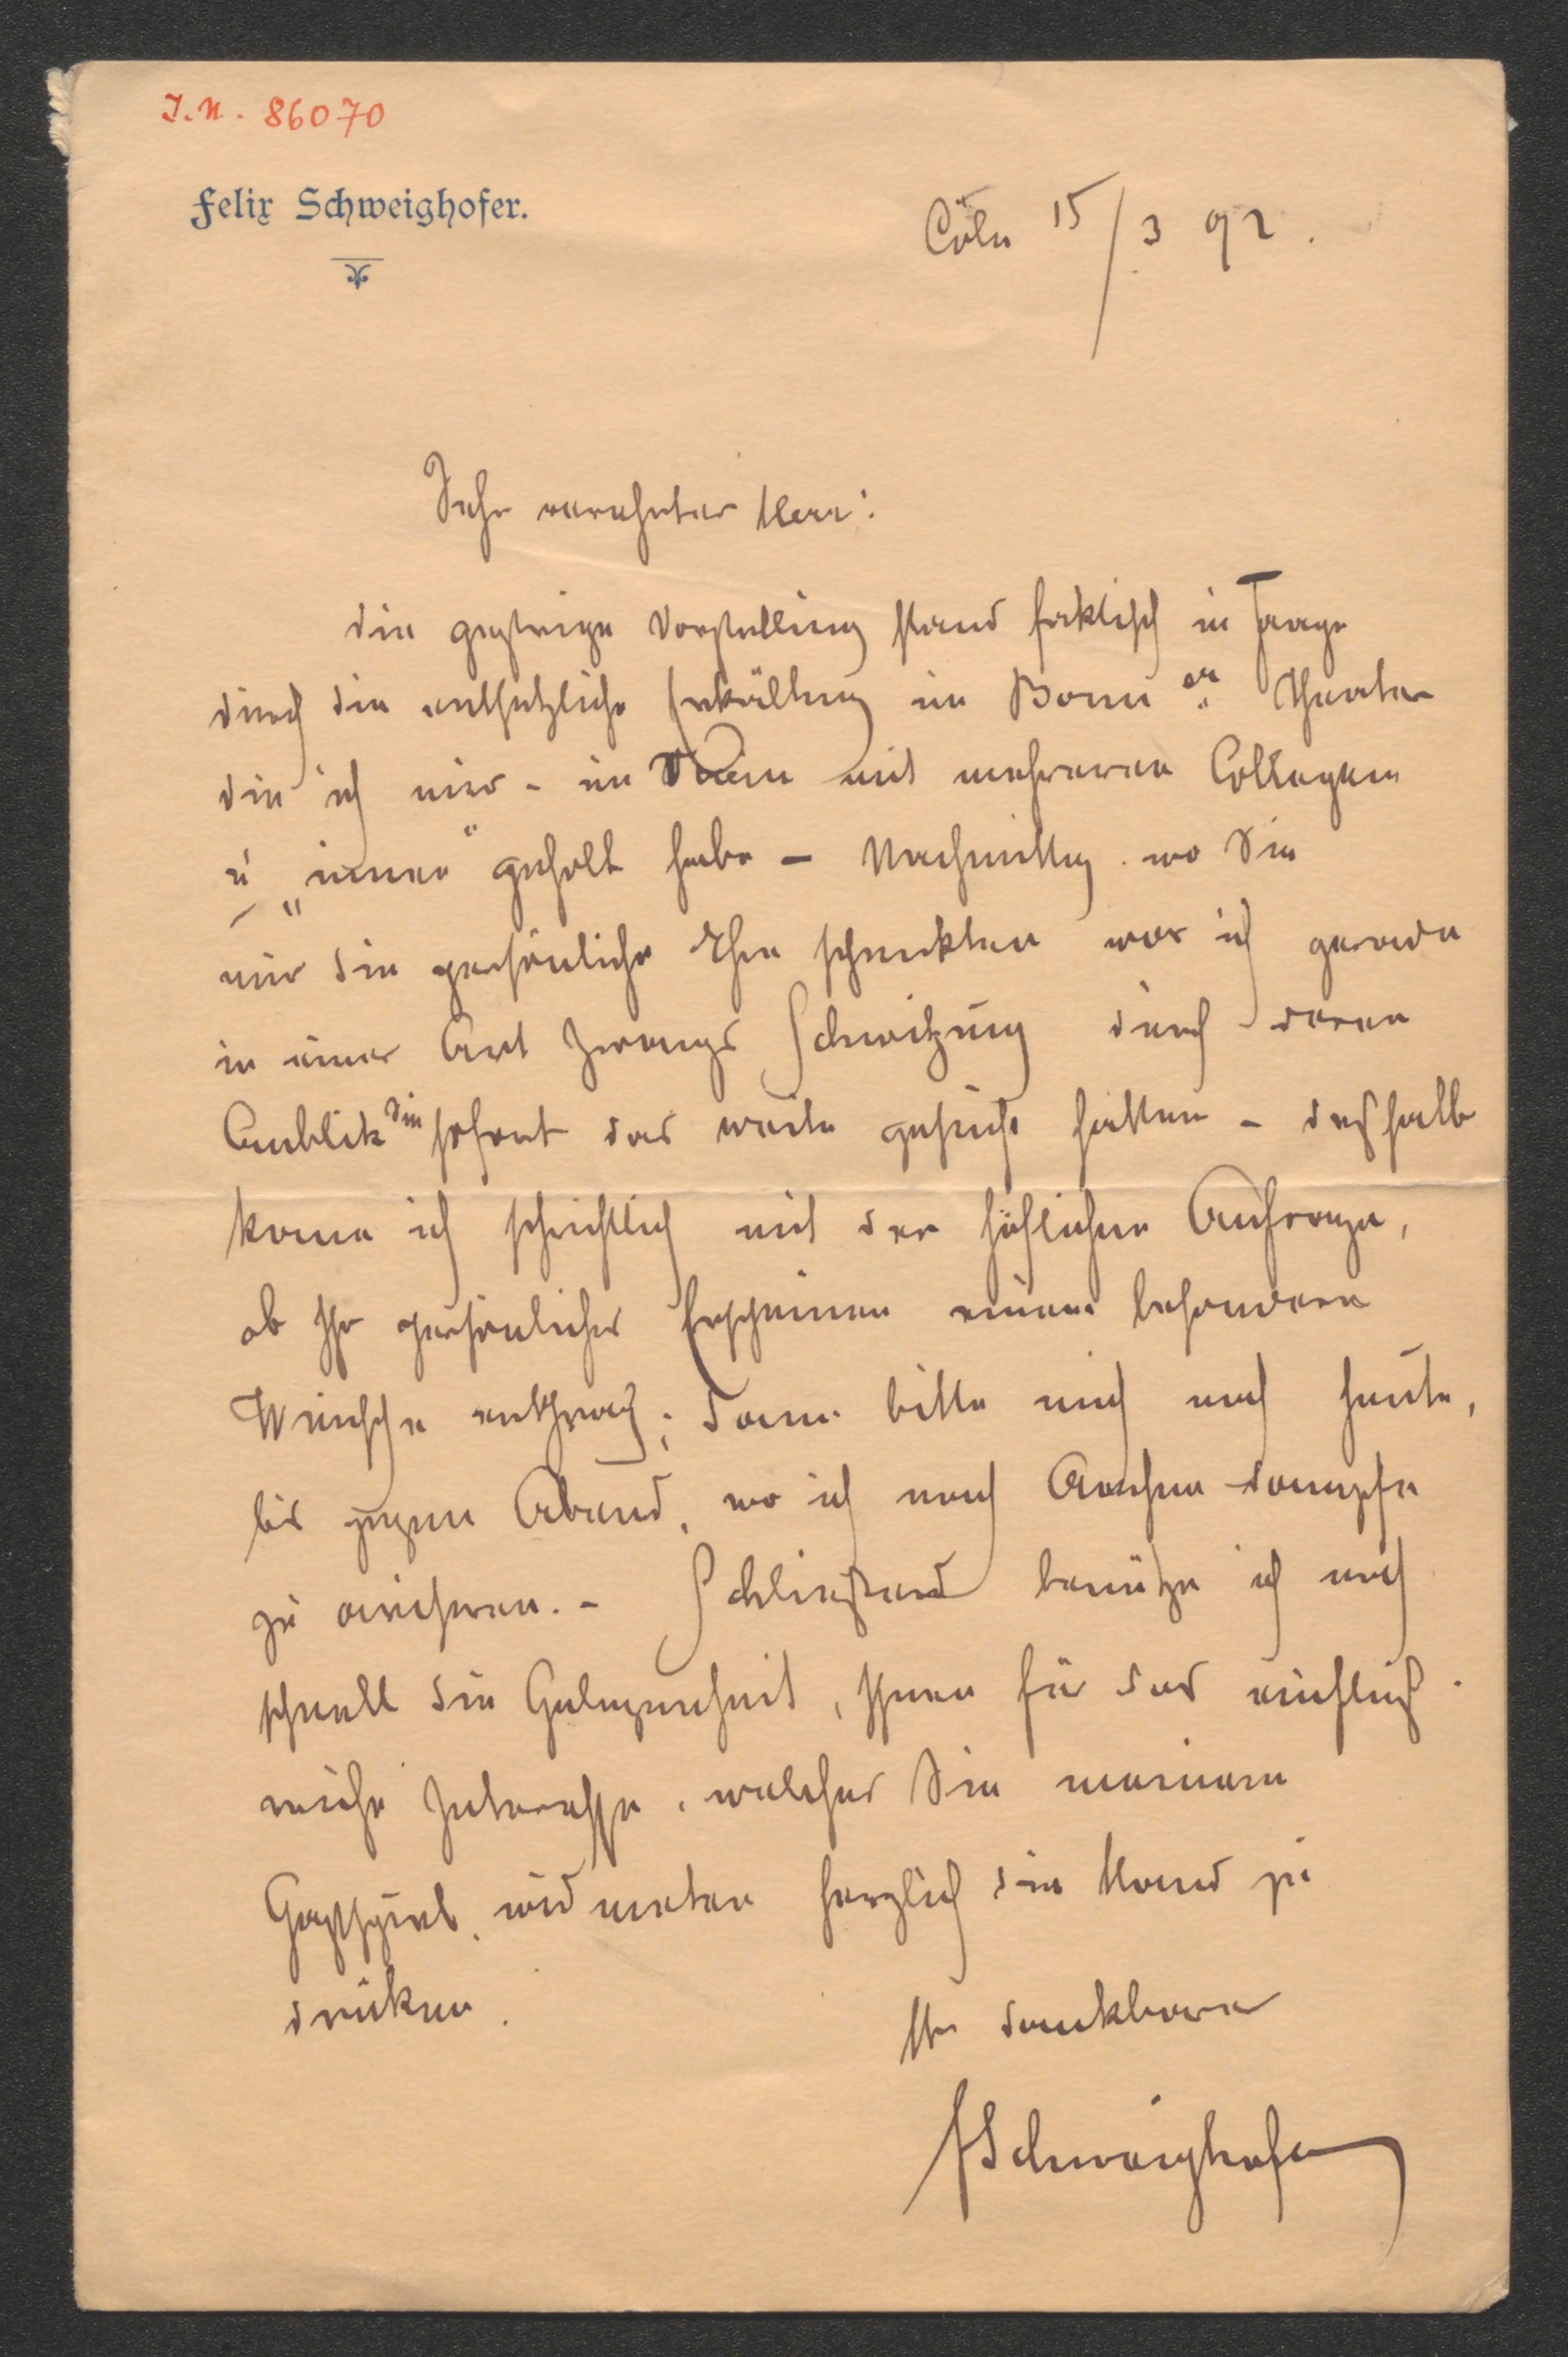 I.N. 86070
Felix Schweighofer.
Cöln 15/3 92.
Sehr verehrter Herr!
die gestrige Vorstellung stand faktisch in Frage
durch die entsetzliche Erkältung im Bonner Theater
die ich mir - im mit mehreren Collegen
u. geholt habe - Nachmittag. wo Sie
mir die persönliche Ehre schenkten war ich gerade
in einer Art Zwangs Schwitzung durch deren
Anblick Sie sofort das weite gesucht hätten - deßhalb
kome ich schriftlich mit der höflichen Anfrage,
ob Ihr persönliches Erscheinen einem besondern
Wunsche entsprach; dann bitte mich noch heute,
bis gegen Abend, wo ich nach Aachen dampfe
zu avisieren. - Schließend benütze ich noch
schnell die Gelegenheit, Ihnen für das
Interesse, welches Sie meinem
Gastspiel widmeten herzlich die Hand zu
drüken.
Ihr dankbarer
FSchweighofer